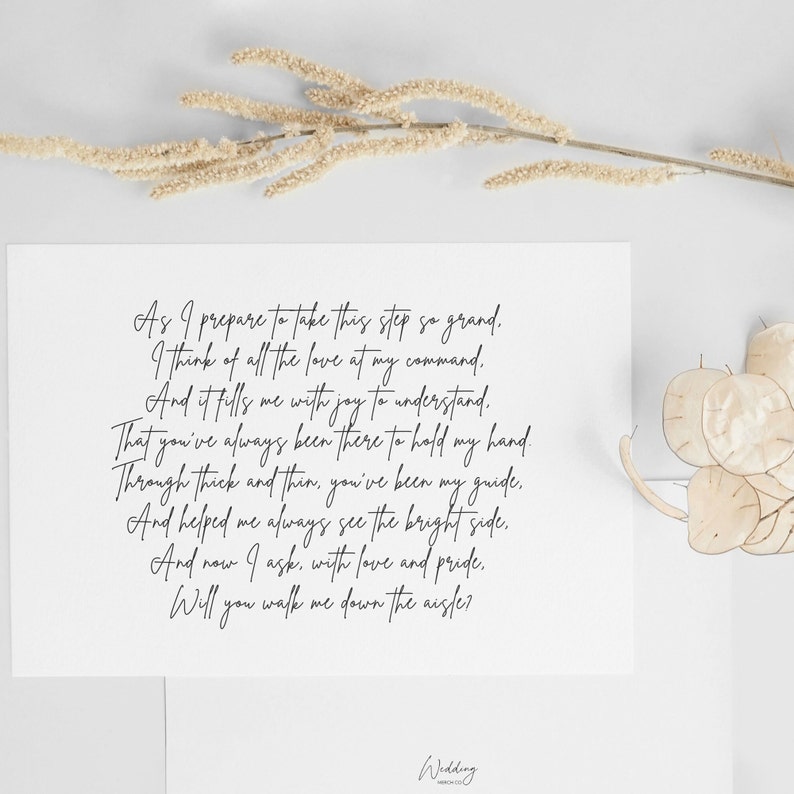 As I prepare to take this step so grand,
I think of all the love at my command,
And it fills me with joy to understand,
That you've always been there to hold my hand.
Through thick and thin, you've been my guide,
And helped me always see the bright side,
And now I ask, with love and pride,
Will you walk me down the aisle?
Wedding
MERCH.CO